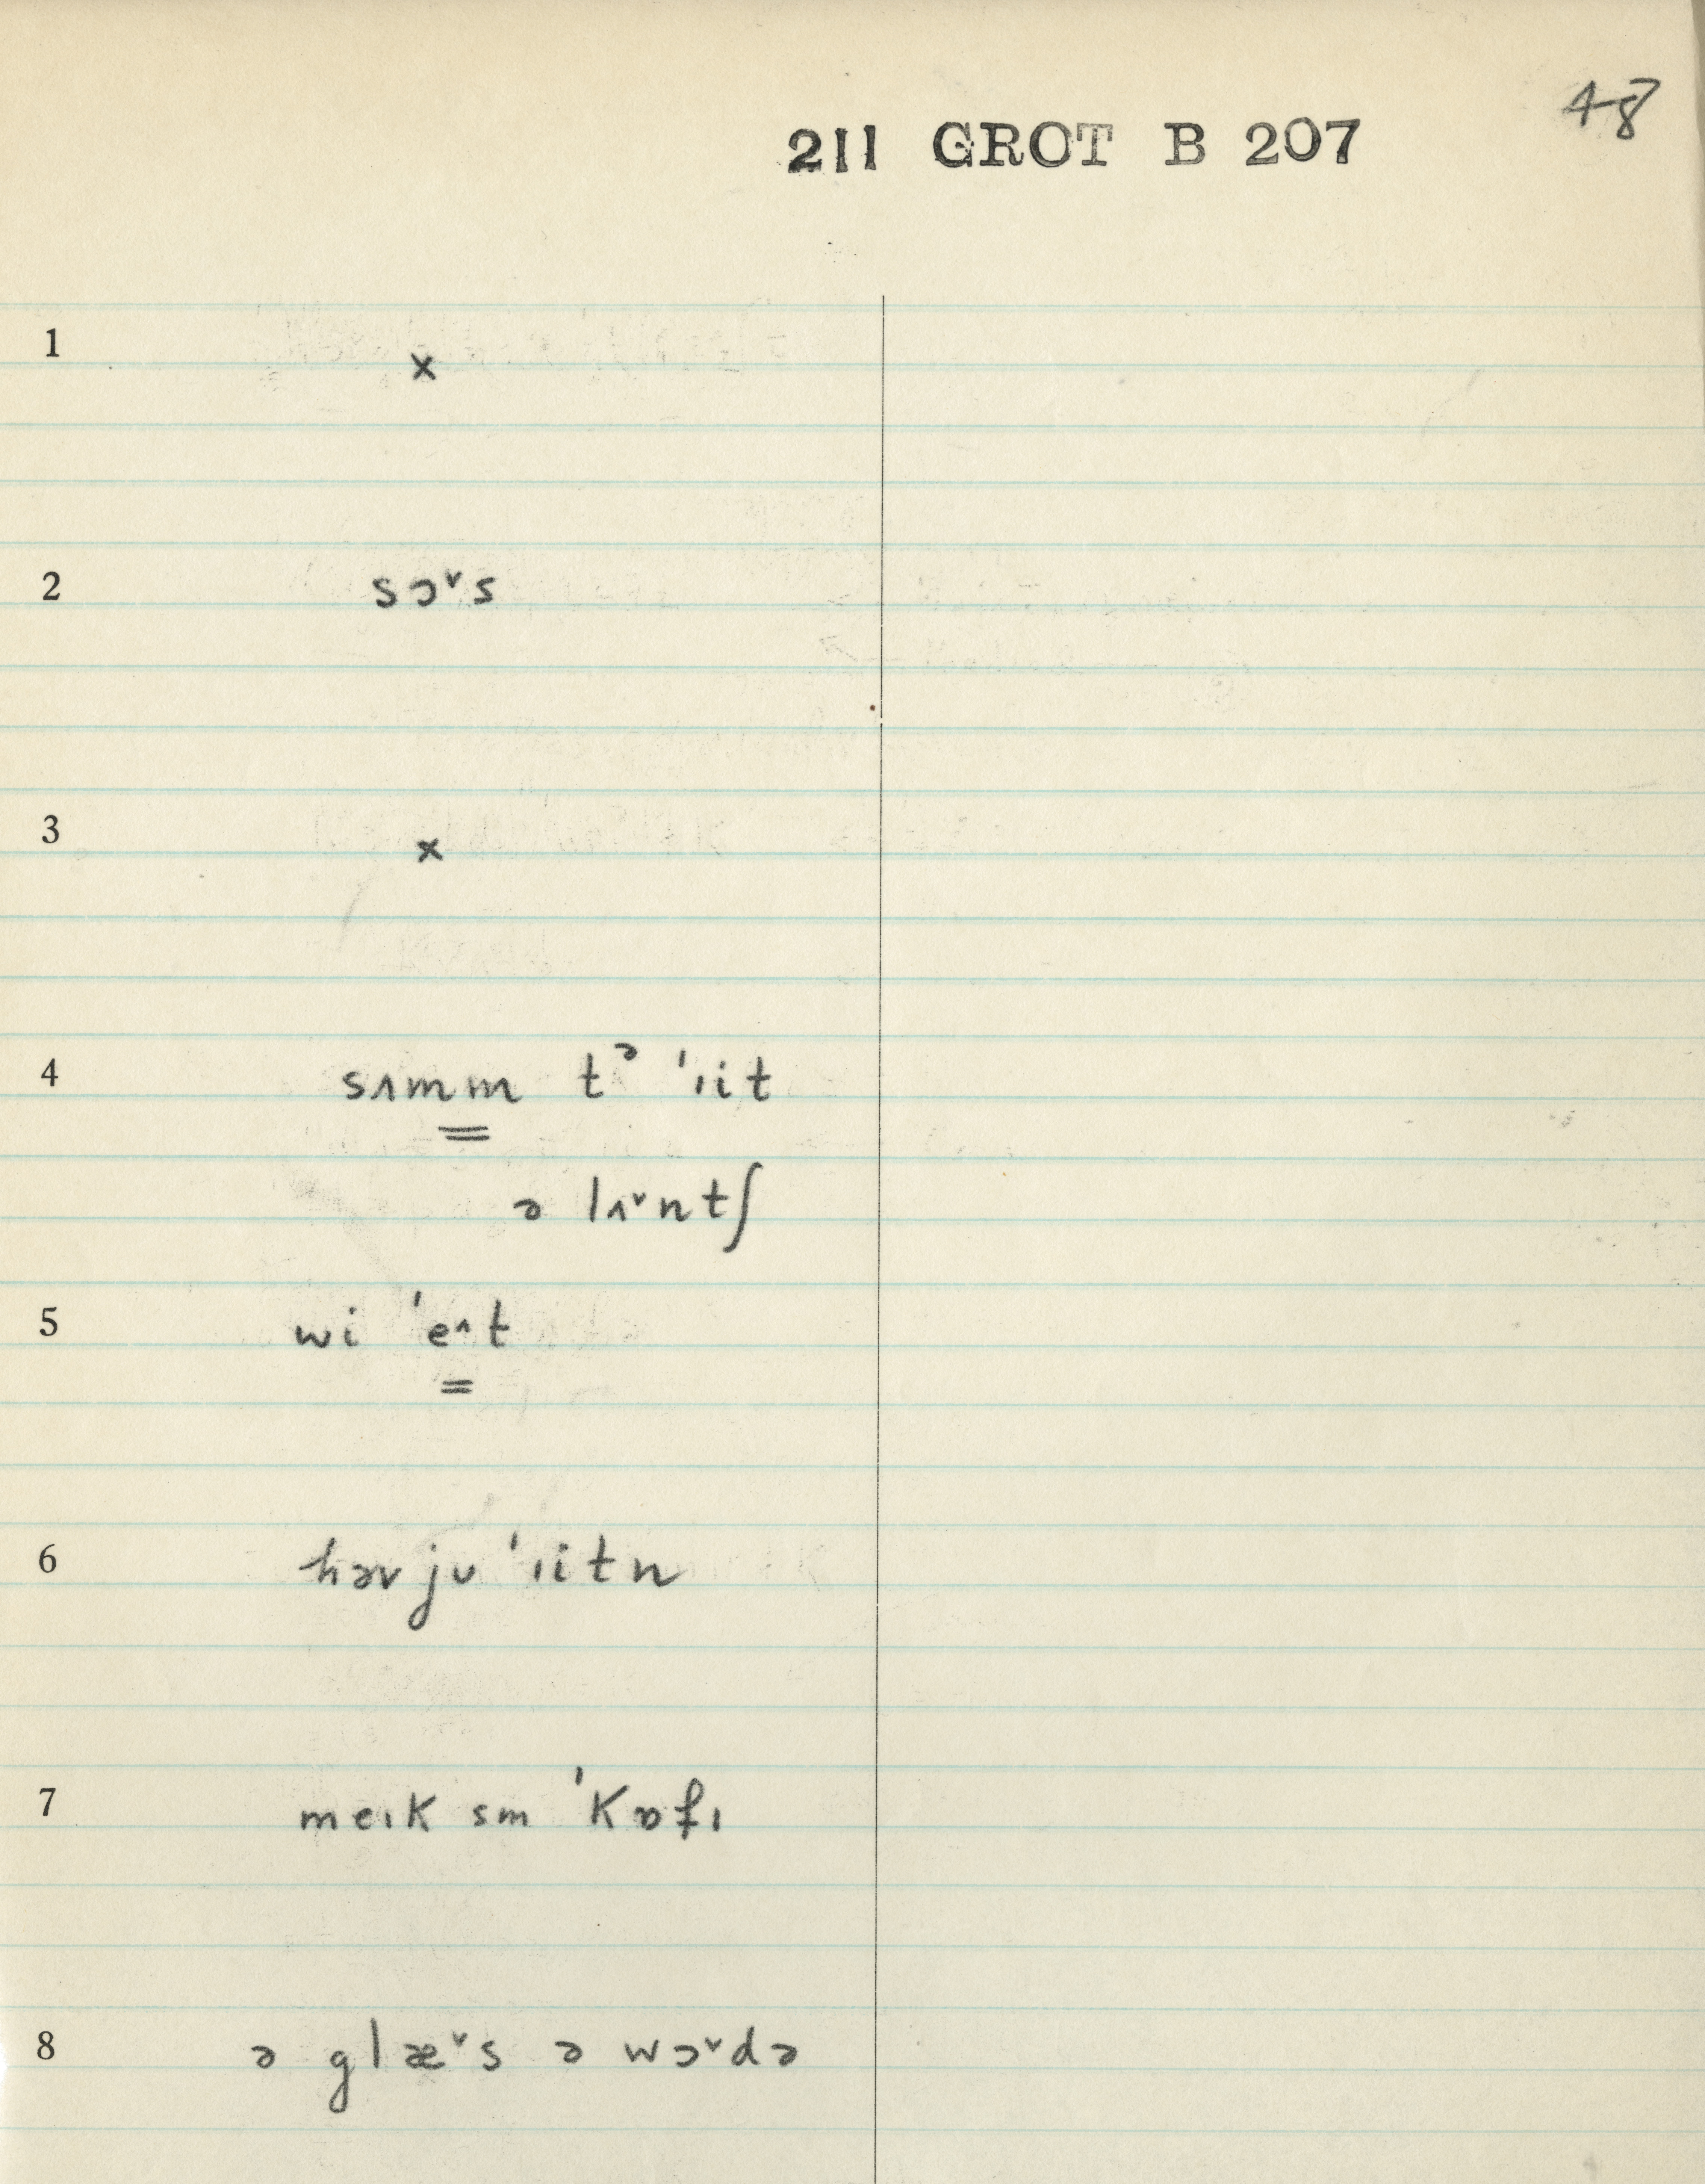 48
211 GROT B 207
1 x
2 sɔˇs
3 x
4 sʌmm tᵊ 'ɪit
ə lʌˇntʃ
5 wi 'e^t
6 həv jʊ 'ɪitn
7 meɪk sm 'kɒfɪ
8 ə glæˇs ə wɔˇdə